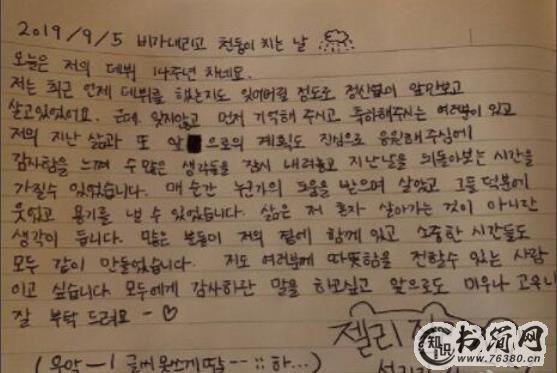 2019/9/5 비가내리고 천둥이 치는 날
오늘은 저의 데뷔 14주년 차네요.
저는 최근 언제 데뷔를 했는지도 잊어버릴 정도로 정신없이 앞만보고
살고있었어요. 근데, 잊지않고 먼저 기억해 주시고 축하해주시는 여러분이 있고
저의 지난 삶과 또 앞으로의 계획도 진심으로 응원해주심에
감사함을 느껴 수 많은 생각들을 잠시 내려놓고 지난날을 뒤돌아보는 시간을
가질수 있었습니다. 매 순간 누군가의 도움을 받으며 살았고 그들 덕분에
웃었고 용기를 낼 수 있었습니다. 삶은 저 혼자 살아가는 것이 아니란
생각이 듭니다. 많은 분들이 저의 곁에 함께 있고 소중한 시간들도
모두 같이 만들었습니다. 저도 여러분께 따뜻함을 전할수 있는 사람
이고 싶습니다. 모두에게 감사하단 말을 하고싶고 앞으로도 미우나 고우나
잘 부탁 드려요 - ♡
젤리
(윽악ㅡ! 글씨 못쓰게따ㅡㅡ;; 하...)
书简网
知识
www.76380.cn